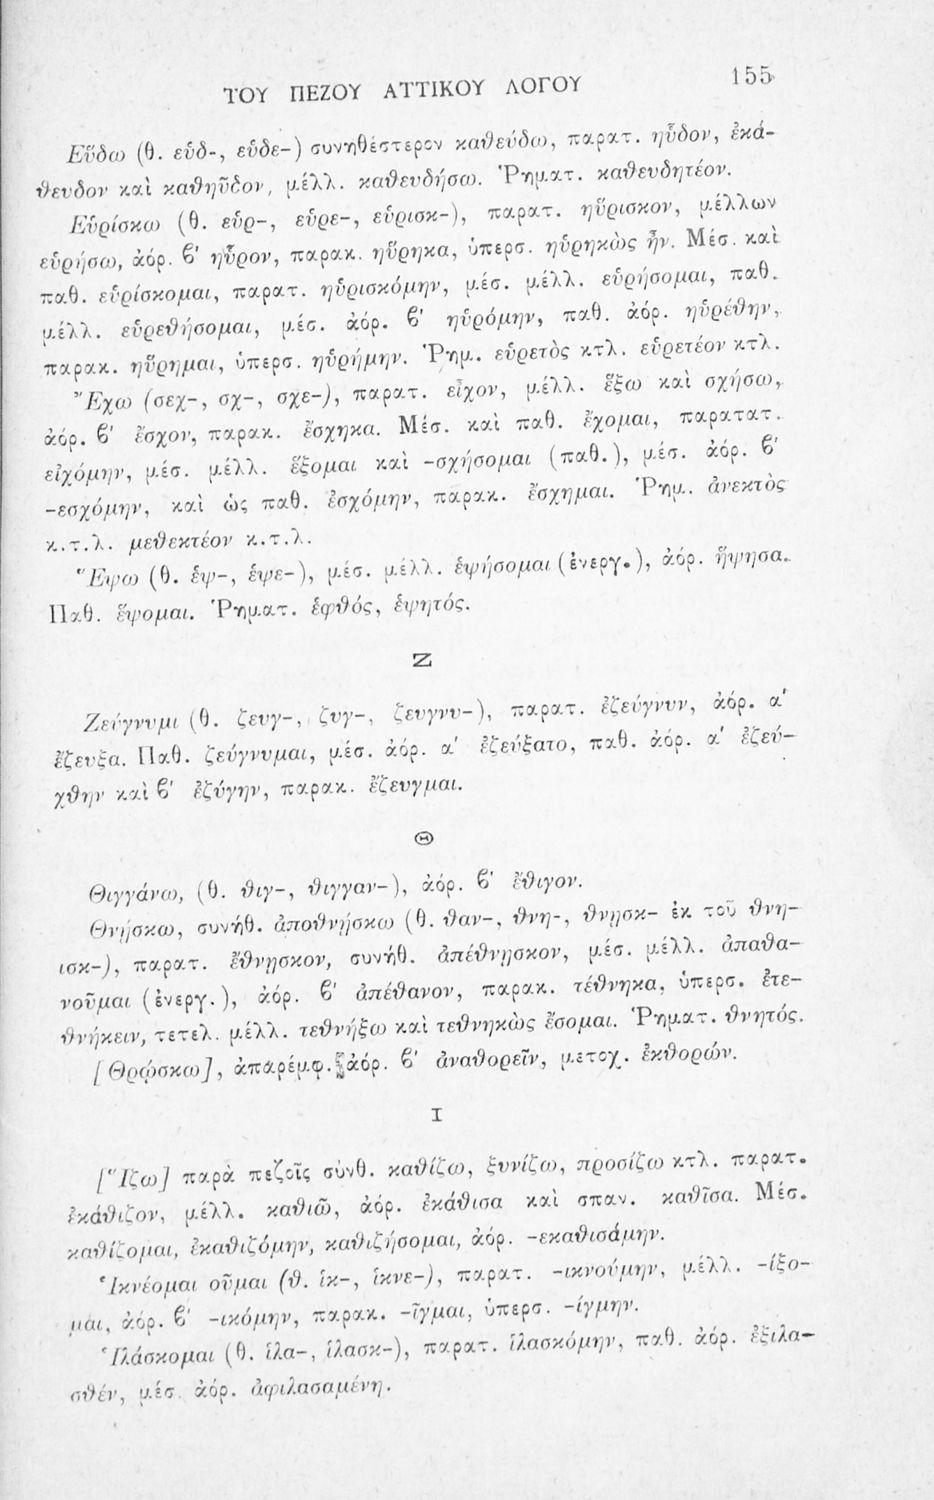 ΤΟΥ ΠΕΖΟΥ ΑΤΤΙΚΟΥ ΛΟΓΟΥ 155
Εὕδω (θ. εὑδ-, εὑδε-) συνηθέστερον καθεύδω, παρατ. ηὗδον, ἐκά-
θευδον καὶ καθηῦδον, μέλλ. καθευδήσω. Ῥηματ. καθευδητέον.
Εὑρίσκω (θ. εὑρ-, εὑρε-, εὑρισκ-), παρατ. ηὕρισκον, μέλλων
εὑρήσω, ἀόρ. ϐ' ηὗρον, παρακ. ηὕρηκα, ὑπερσ. ηὑρηκὼς ἦν. Μέσ. καὶ
παθ. εὑρίσκομαι, παρατ. ηὑρισκόμην, μέσ. μέλλ. εὑρήσομαι, παθ.
μέλλ. εὑρεθήσομαι, μέσ. ἀόρ. ϐ' ηὑρόμην, παθ. ἀόρ. ηὑρέθην,
παρακ. ηὕρημαι, ὑπερσ. ηὑρήμην. Ῥημ. εὑρετὸς κτλ. εὑρετέον κτλ.
Ἔχω (σεχ-, σχ-, σχε-), παρατ. εἶχον, μέλλ. ἕξω καὶ σχήσω,
ἀόρ. ϐ' ἔσχον, παρακ. ἔσχηκα. Μέσ. καὶ παθ. ἔχομαι, παρατατ.
εἰχόμην, μέσ. μέλλ. ἕξομαι καὶ -σχήσομαι (παθ.), μέσ. ἀόρ. ϐ'
-εσχόμην, καὶ ὡς παθ. ἐσχόμην, παρακ. ἔσχημαι. Ῥημ. ἀνεκτὸς
κ.τ.λ. μεθεκτέον κ.τ.λ.
Ἕψω (θ. ἑψ-, ἑψε-), μέσ. μέλλ. ἑψήσομαι (ἐνεργ.), ἀόρ. ἥψησα.
Παθ. ἕψομαι. Ῥηματ. ἑφθός, ἑψητός.
Ζ
Ζεύγνυμι (θ. ζευγ-, ζυγ-, ζευγνυ-), παρατ. ἐζεύγνυν, ἀόρ. α'
ἔζευξα. Παθ. ζεύγνυμαι, μέσ. ἀόρ. α' ἐζεύξατο, παθ. ἀόρ. α' ἐζεύ-
χθην καὶ ϐ' ἐζύγην, παρακ. ἔζευγμαι.
Θ
Θιγγάνω, (θ. θιγ-, θιγγαν-), ἀόρ. ϐ' ἔθιγον.
Θνῄσκω, συνήθ. ἀποθνῄσκω (θ. θαν-, θνη-, θνῃσκ- ἐκ τοῦ θνη-
ισκ-), παρατ. ἔθνῃσκον, συνήθ. ἀπέθνῃσκον, μέσ. μέλλ. ἀπαθα-
νοῦμαι (ἐνεργ.), ἀόρ. ϐ' ἀπέθανον, παρακ. τέθνηκα, ὑπερσ. ἐτε-
θνήκειν, τετελ. μέλλ. τεθνήξω καὶ τεθνηκὼς ἔσομαι. Ῥηματ. θνητός.
[Θρῴσκω], ἀπαρέμφ. ἀόρ. ϐ' ἀναθορεῖν, μετοχ. ἐκθορών.
Ι
[Ἵζω] παρὰ πεζοῖς σύνθ. καθίζω, ξυνίζω, προσίζω κτλ. παρατ.
ἐκάθιζον, μέλλ. καθιῶ, ἀόρ. ἐκάθισα καὶ σπαν. καθῖσα. Μέσ.
καθίζομαι, ἐκαθιζόμην, καθιζήσομαι, ἀόρ. -εκαθισάμην.
Ἱκνέομαι οῦμαι (θ. ἱκ-, ἱκνε-), παρατ. -ικνούμην, μέλλ. -ίξο-
μαι, ἀόρ. ϐ' -ικόμην, παρακ. -ῖγμαι, ὑπερσ. -ίγμην.
Ἱλάσκομαι (θ. ἱλα-, ἱλασκ-), παρατ. ἱλασκόμην, παθ. ἀόρ. ἐξιλα-
σθέν, μέσ. ἀόρ. ἀφιλασαμένη.